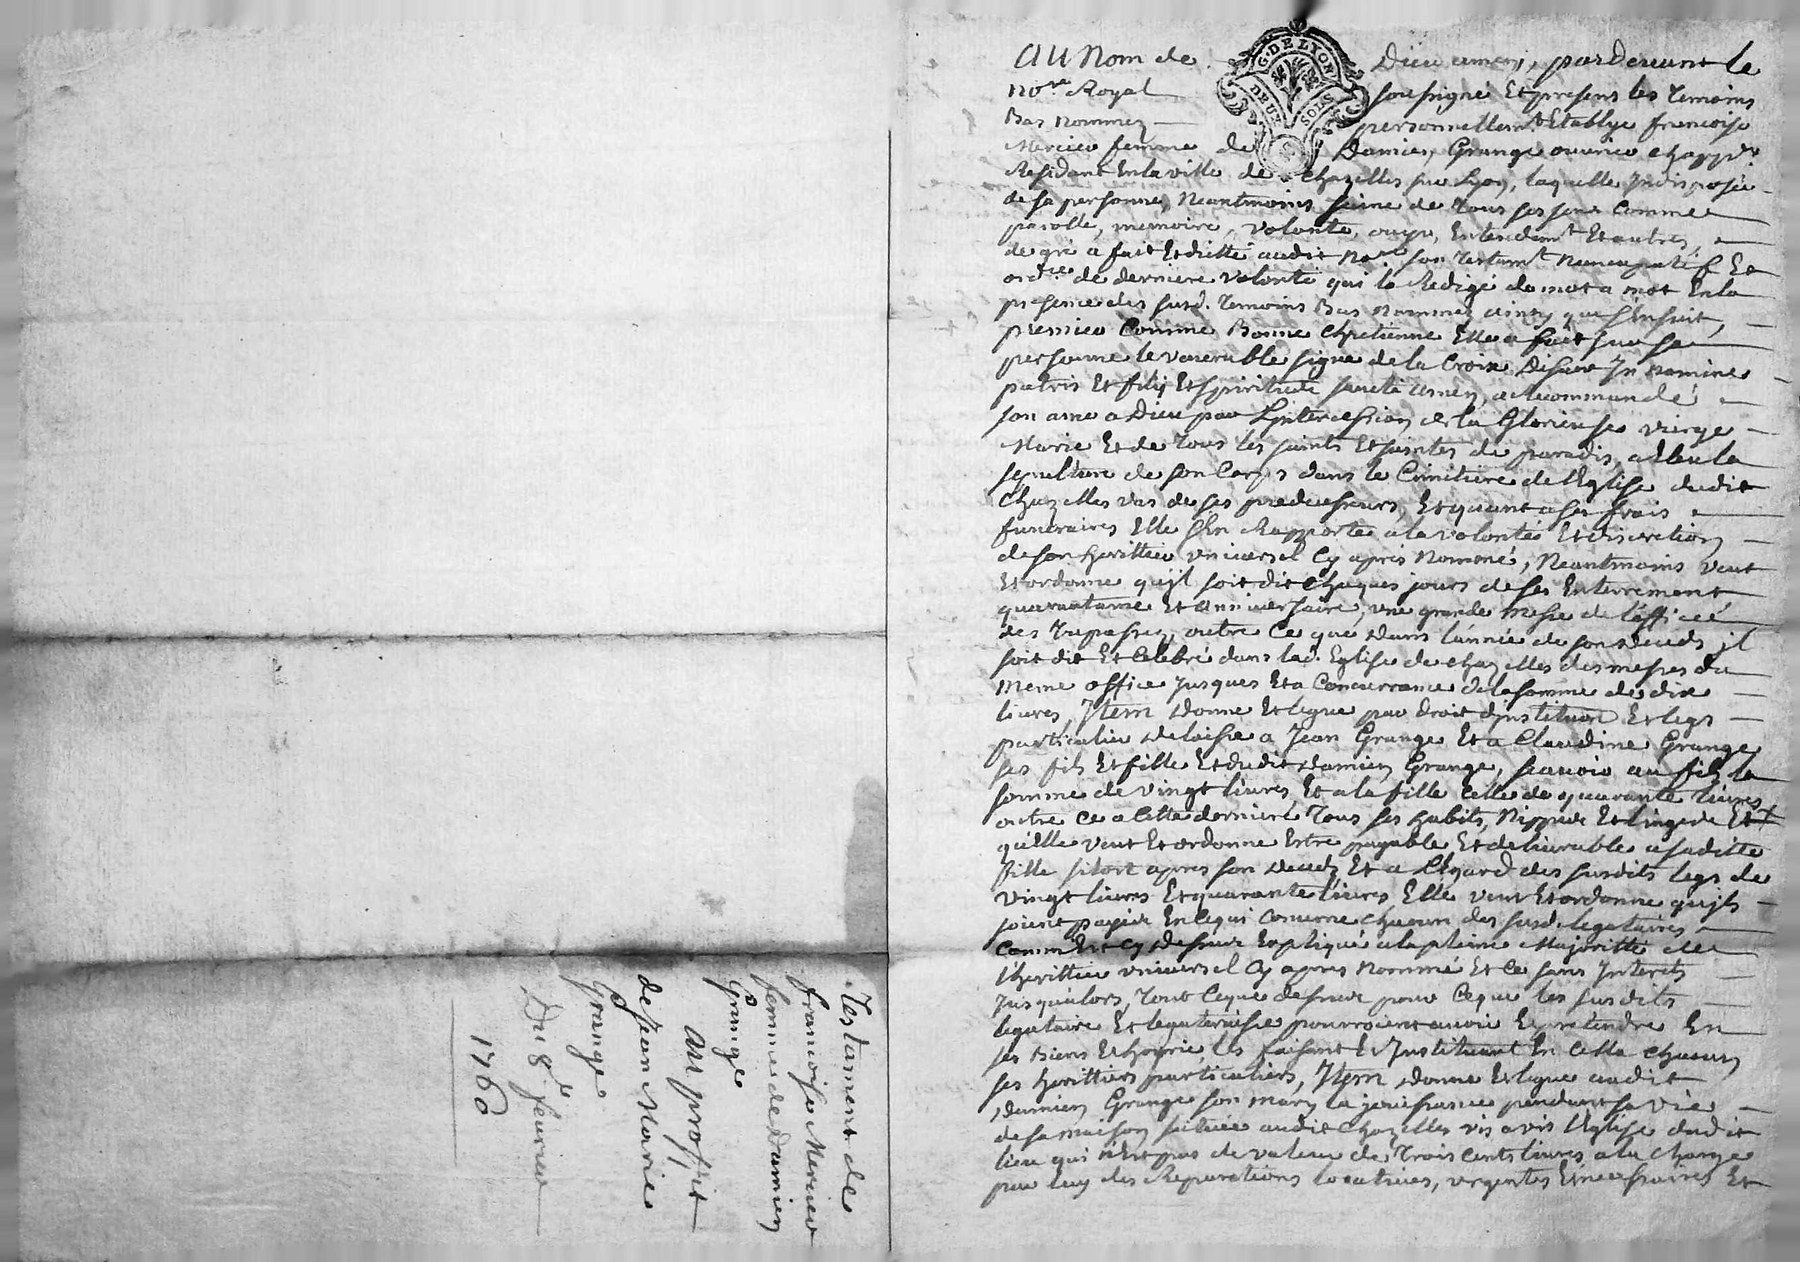 Testament de
francoise Mercier
femme de Damien
Grange
Au proffit
de Jean Marie
Grange
Du 8e fevrier
1760
G. DE LYON
DEUX SOLS
AU Nom de Dieu amen, pardevant le
nore Royal soussigné Et presens les Temoins
Bas nommez personnellemt Etablye francoise
Mercier femme de Damien Grange ouvrier chappr
Residant En la ville de Chazelles sur Lyon, laquelle Indisposée
de sa personne, Neantmoins saine de Tous ses sens Comme
parolle, memoire, volonté, ouye, Entendemt Et autres,
de gré a fait Et dicté audit Nore son Testamt Nuncupatif Et
ordre de derniere volonté qui la Redigé de mot a mot En la
presence des susd. Temoins Bas nommez ainsy que s'Ensuit,
premier Comme Bonne Chretienne Elle a fait sur sa
personne le venerable signe de la Croix Disant In nomine
patris Et filij Et spiritus sancti amen, a Recommandé
son ame a Dieu par L'intercession de la Glorieuse vierge
Marie Et de Tous les saints Et saintes de paradis, a Eleu la
sepulture de son Corps dans le Cimitiere de l'Eglise dudit
Chazelles vas de ses predecesseurs, Et quant a ses frais
funeraires Elle s'En Rapporte a la volonté Et discretion
de son herittier universel Cy apres Nommé, Neantmoins veut
Et ordonne qu'jl soit dit chaques jours de ses Enterrement
quarantaine Et anniversaire, une grande Messe de l'office
des Trepassez, outre Ce que Dans l'année de son deceds jl
soit dit Et Celebré dans lad. Eglise de chazelles des messes du
meme office Jusques Et a Concurrance de la somme de dix
livres, Item Donne Et legue par droit d'jnstitution Et legs
particulier Delaisse a Jean Grange Et a Claudine Grange
ses fils Et fille Et dudit Damien Grange, scavoir au fils la
somme de vingt livres, Et a la fille Celle de quarante livres
outre Ce a Cette derniere Tous ses habits, Nippes Et linges
qu'Elle veut Et ordonne Estre payable Et delivrable a sa ditte
fille sitost apres son deceds Et a L'Egard des susdits legs de
vingt livres Et quarante livres Elle veut Et ordonne qu'jls
soient payés En Cequi Concerne chacun des susd. legataires
Comm'Est Cy dessus Expliqué a la pleine Majoritté de
l'herittier universel Cy apres nommé Et Ce sans Interets
jusqu'alors, Tout Ceque dessus pour Ceque les susdits
legataire Et legataresse pourroient avoir Et pretendre En
ses Biens Et hoyrie les faisant Et Instituant En Cella chacun
ses herittiers particuliers, Item, Donne Et legue audit
Damien Grange son mary la jouissance pendant sa vie
de sa maison scituée audit Chazelles vis a vis l'Eglise dudit
lieu qui n'Est pas de valeur de Trois Cents livres, a la Charge
par luy des Reparations locatives, urgentes Et necessaires Et